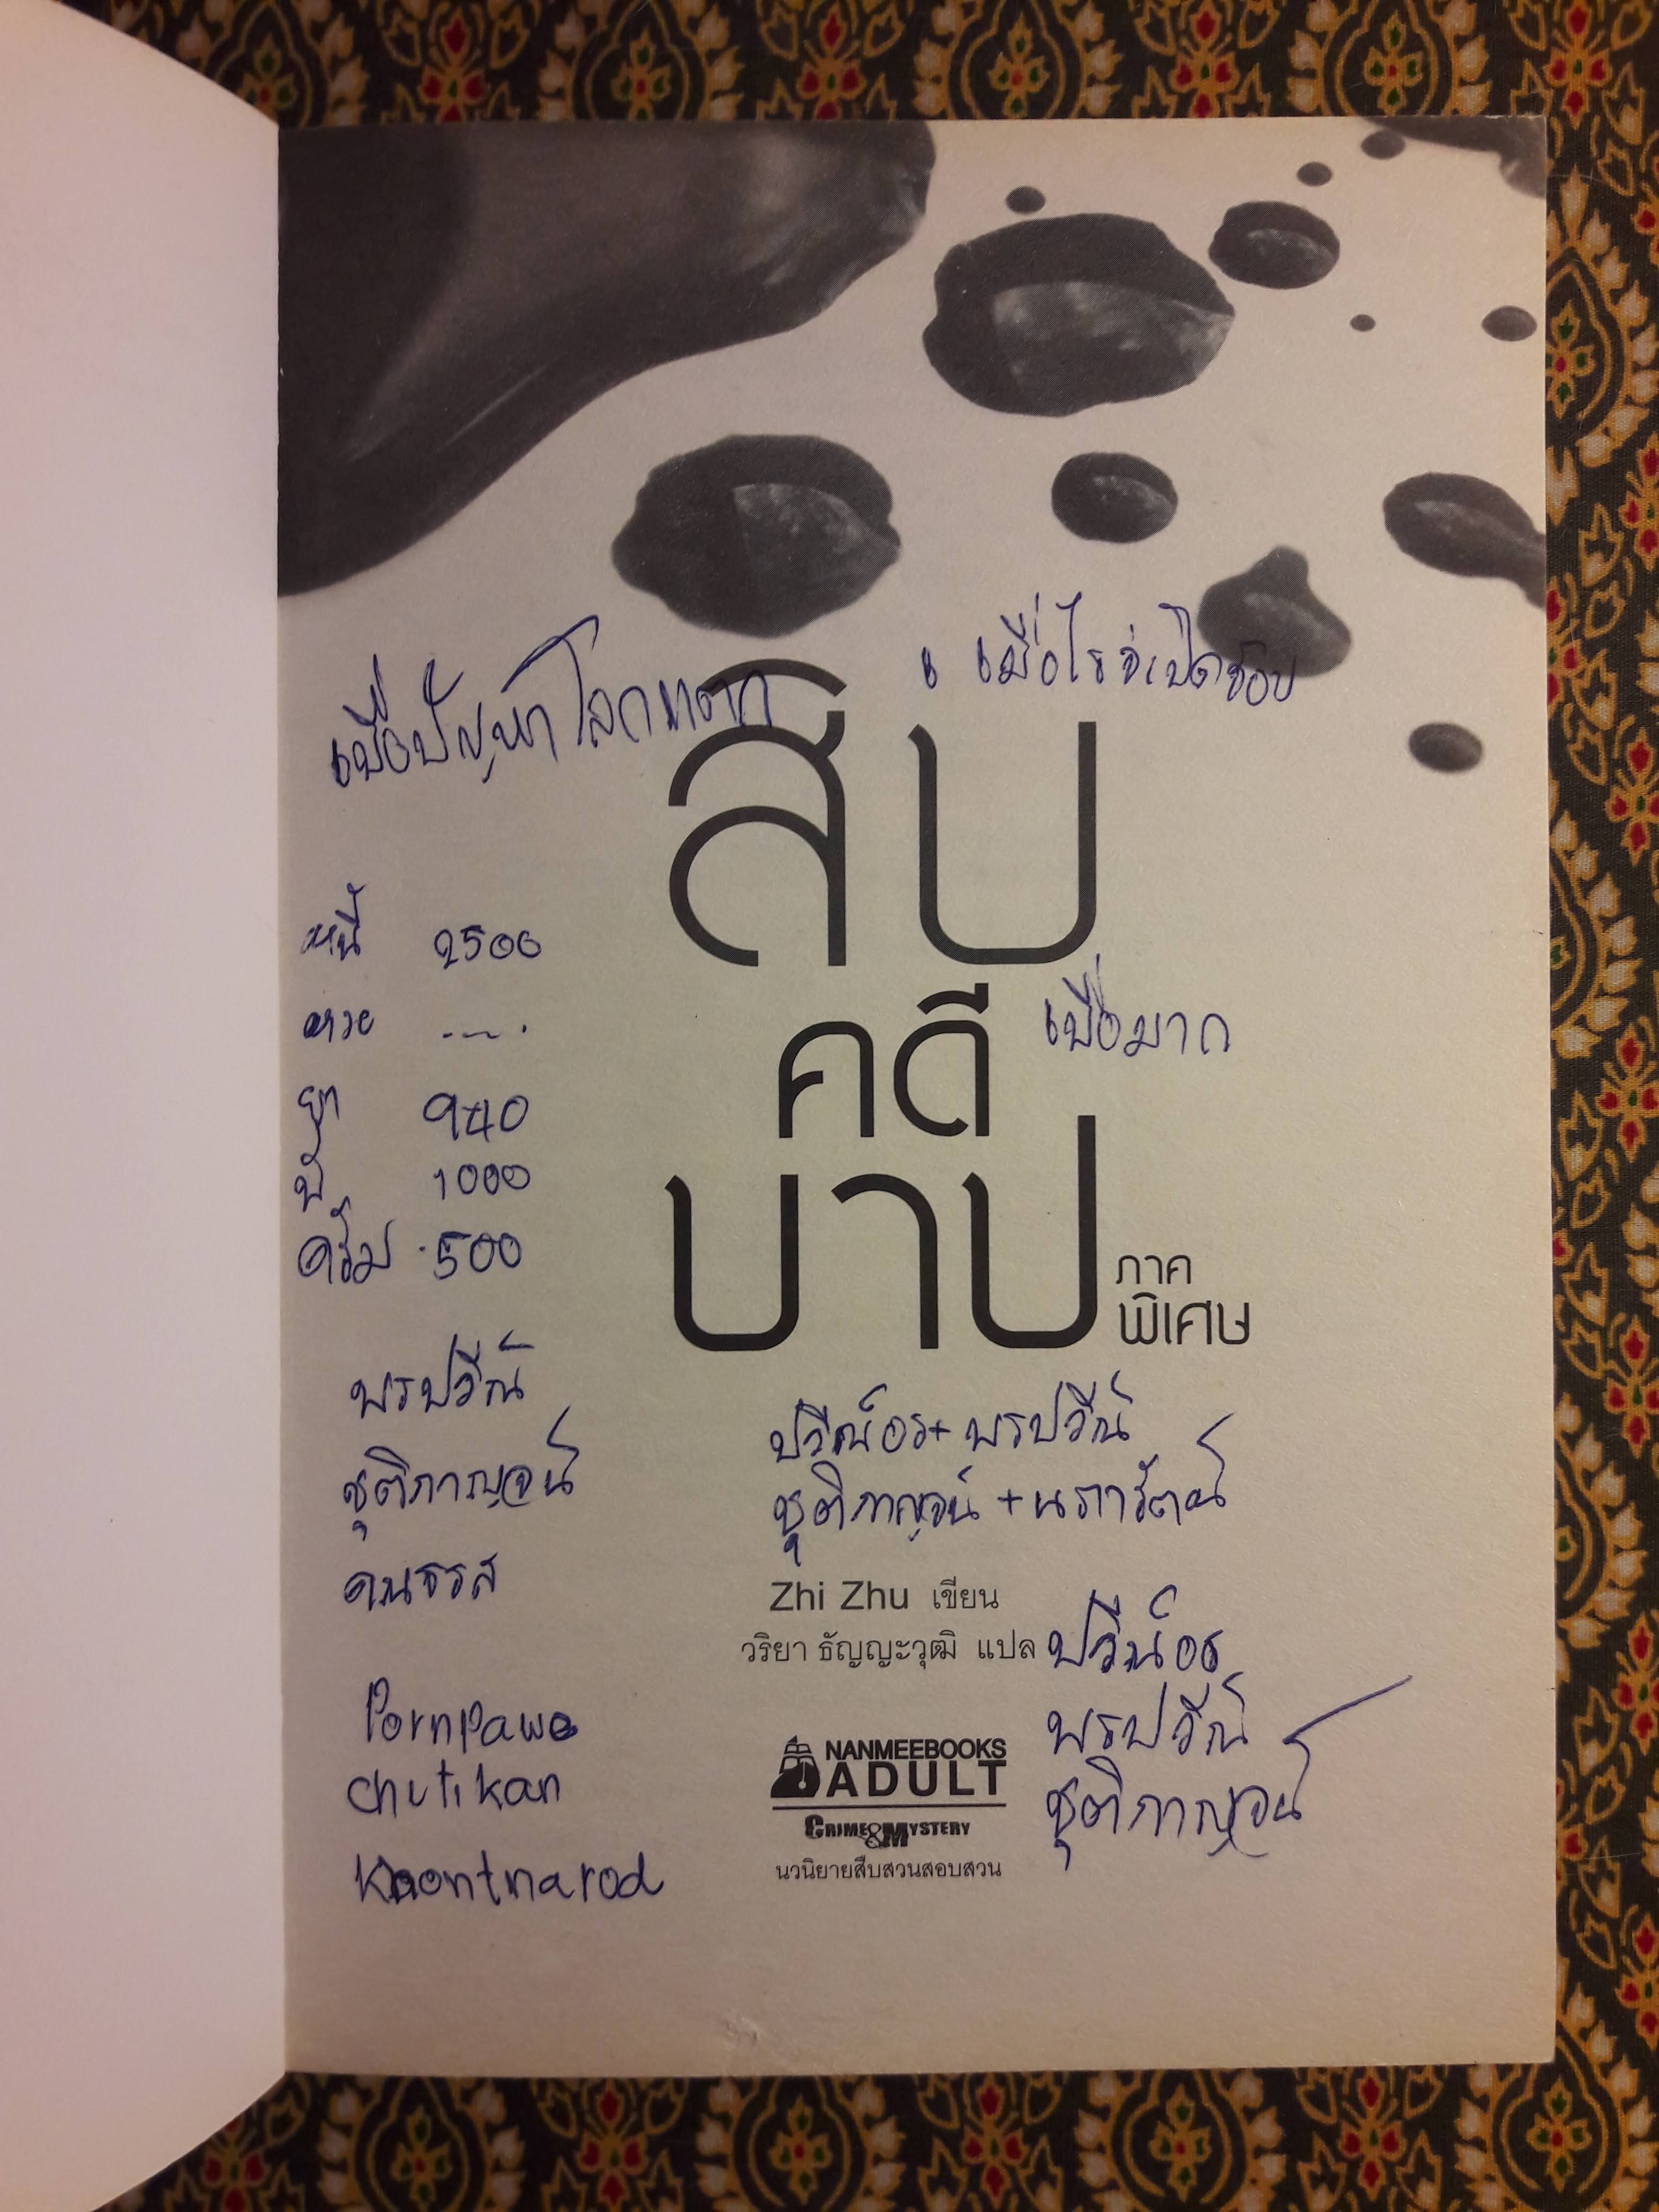 เบื่อปัญหาโลกแตก
เมื่อไรจะเปิดช้อบ
สิบ
หนี้ 2500
หวย ----.
คดี
เบื่อมาก
ยา 940
บาป
1000
ครีม 500
ภาค
พิเศษ
พรปวีณ์
ปวีณ์อร + พรปวีณ์
ชุติกาญจน์
ชุติกาญจน์ + นภารัตน์
คนธรส
Zhi Zhu เขียน
วริยา ธัญญะวุฒิ แปล
ปวีณ์อร
Pornpawe
พรปวีณ์
NANMEEBOOKS
ADULT
chutikan
ชุติกาญจน์
CRIME & MYSTERY
นวนิยายสืบสวนสอบสวน